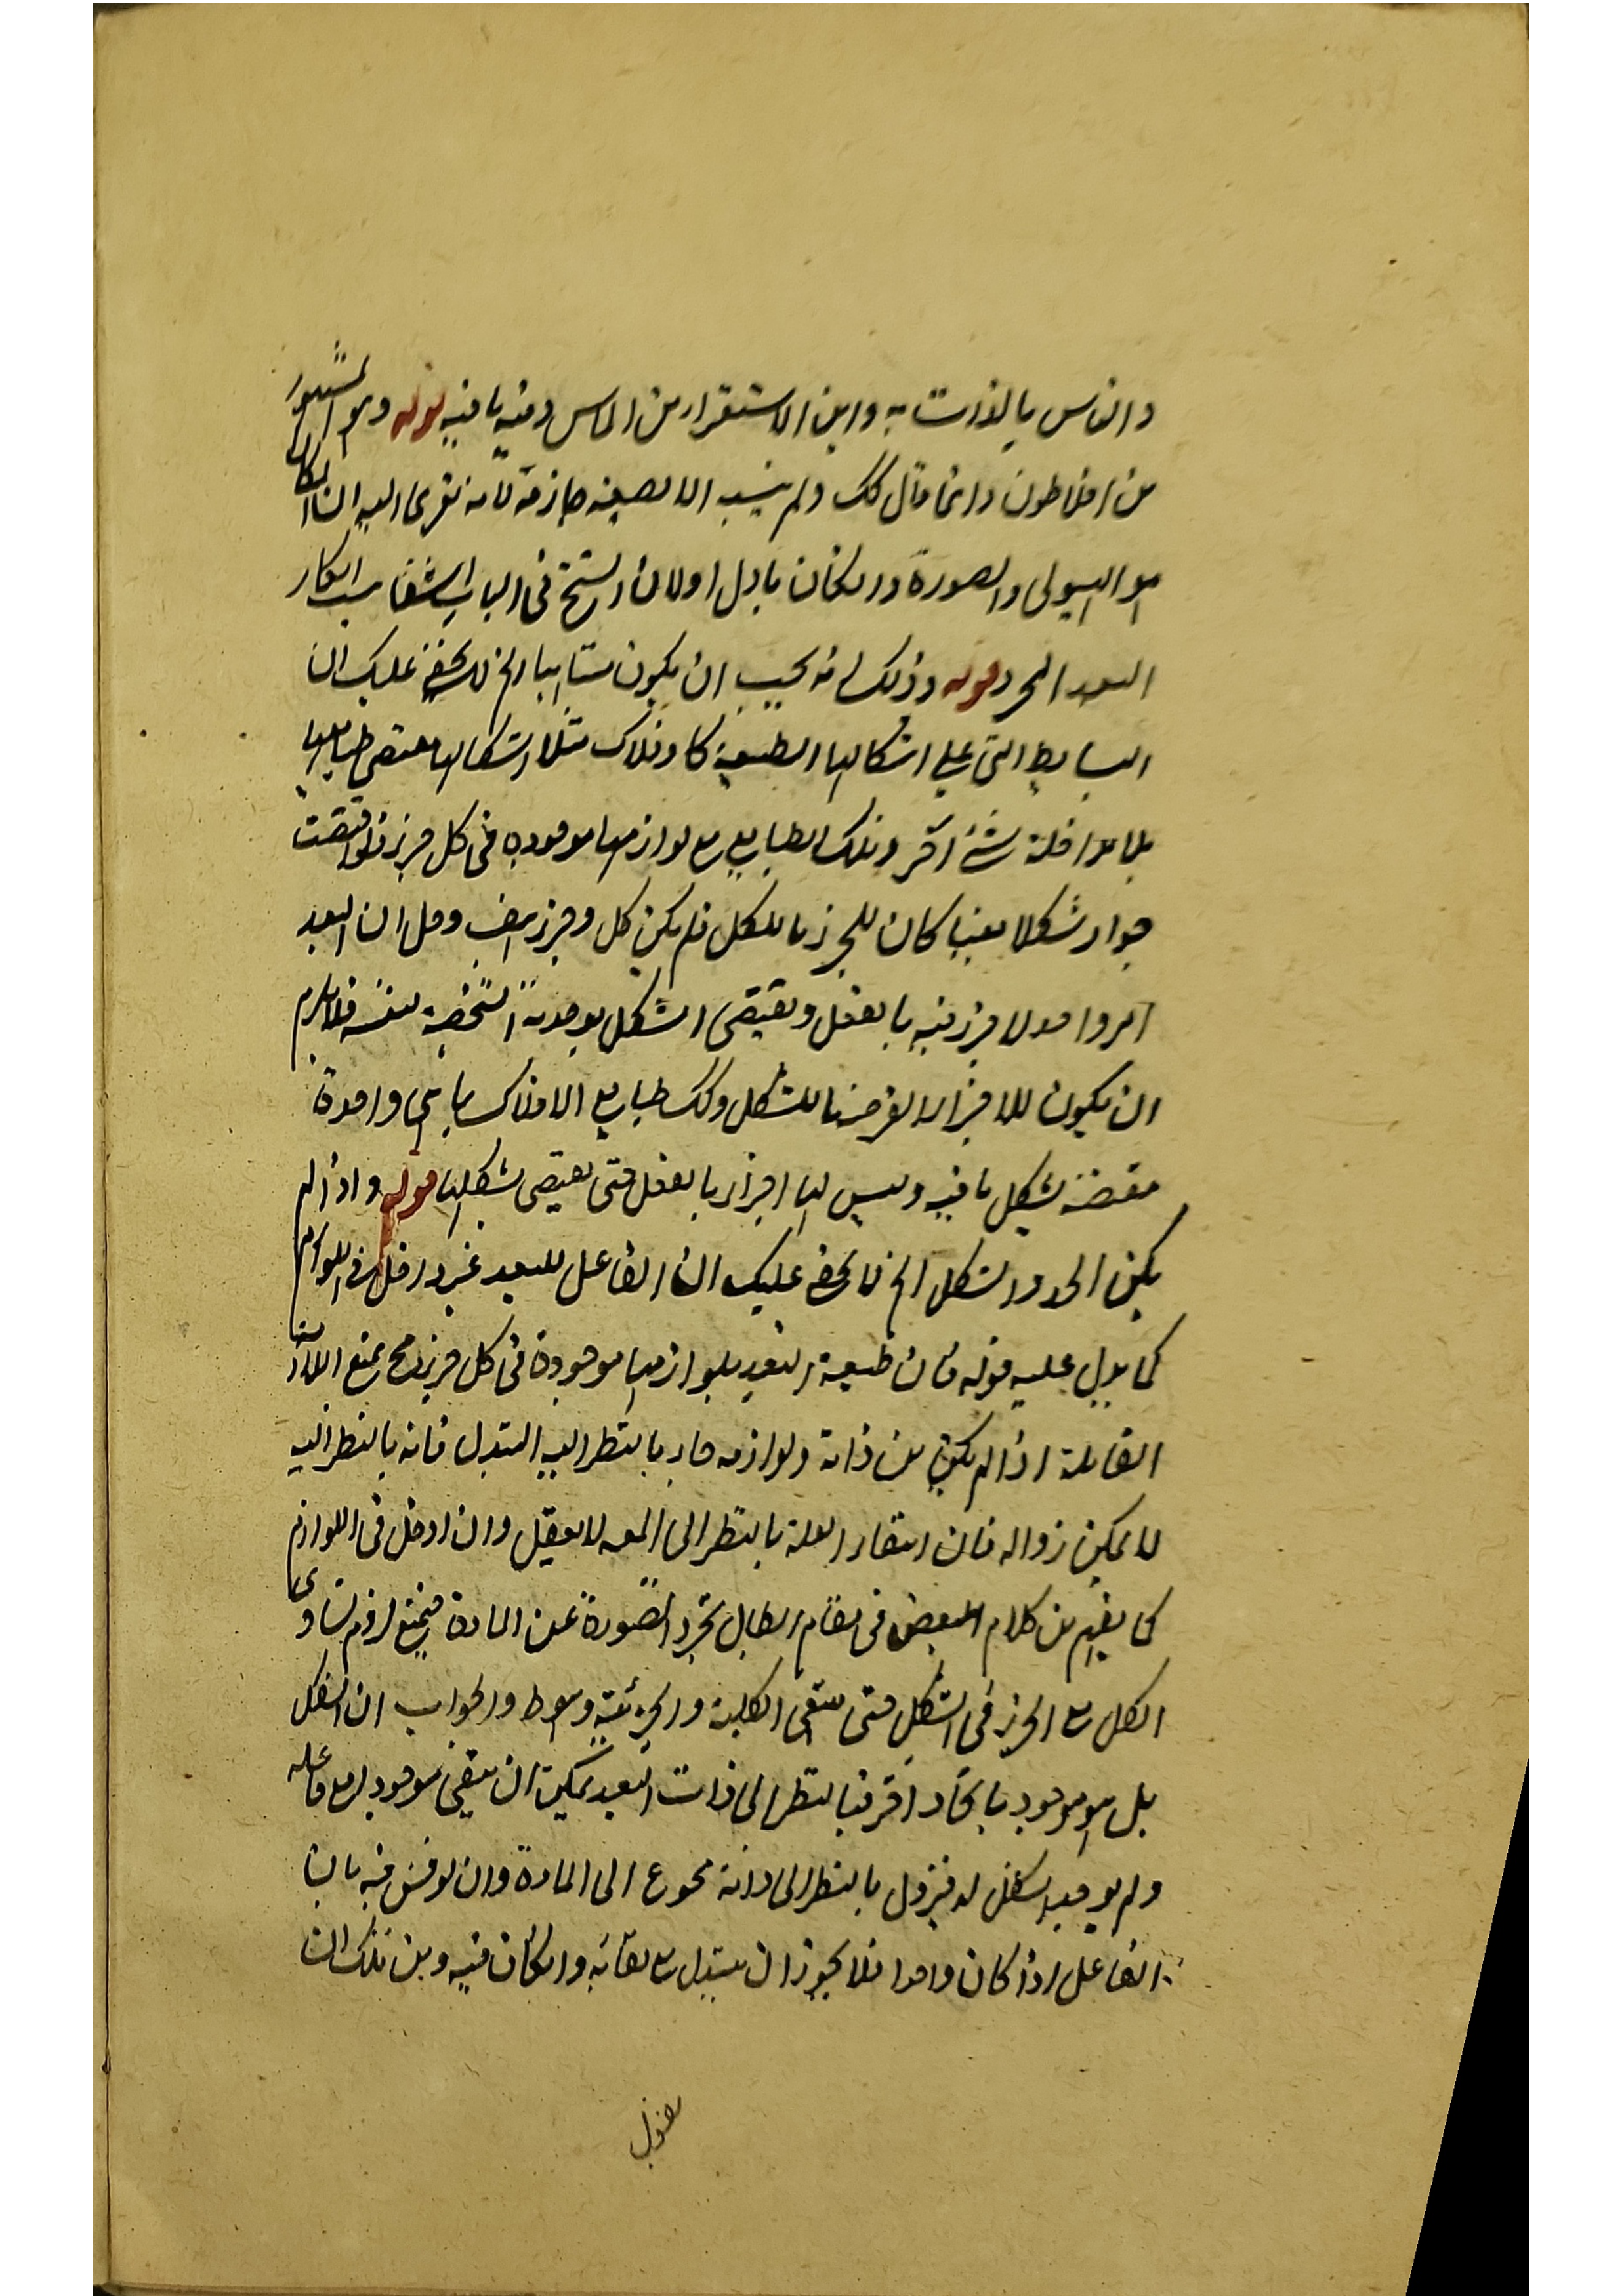 والناس بالذات به واين الاستقرار من الماس وفيه ما فيه قوله وهو المشهور
من افلاطون وانما قال كك ولم ينسب اليه بصيغة جازمة لانه نقرى اليه ان المكان
هو الهيولى والصورة وامكان باول اولان الشيخ في الباب الشفا نسب انكار
البعد المجرد قوله وذلك لانه يجب ان يكون متناهيا الخ لا يخفى عليك ان
البسايط التي على اشكالها الطبيعية كالافلاك مثلا اشكالها مقتضى طبايعها
بلا مداخلة شئ آخر وتلك الطبايع مع لوازمها موجودة في كل جزء فلو اقتضت
شكلا معينا كان للجزء ما للكل فلم يكن كل وجزء وحل ان البعد
امر واحد لا جزء فيه بالفعل ويقتضى الشكل بوحدته الشخصية لنفسه فلا يلزم
ان يكون للاجزاء الفرضية الشكل وكك طبايع الافلاك بما هى واحدة
مقتضية لشكل ما فيه وليس لها اجزاء بالفعل حتى يقتضى شكلها قوله واذا لم
يكن الحد والشكل الخ لا يخفى عليك ان الفاعل للبعد غير داخل في اللوازم
كما يدل عليه قوله فان طبيعة البعد بلوازمها موجودة في كل جزء فح يمنع الملازمة
القابلة اذا لم يكن من ذاته ولوازمه جاز بالنظر اليه التبدل فانه بالنظر اليه
لا يمكن زواله فان انتفاء العلة بالنظر الى المعه لا يعقل وان ادخل في اللوازم
كما يفهم من كلام البعض في مقام ابطال تجرد الصورة عن المادة فيمنع لزوم تساوى
الكل مع الجزء في الشكل حتى ينتفى الكلية والجزئية وهو ط والجواب ان الشكل
بل هو موجود بايجاد آخر فبالنظر الى ذات البعد يمكن ان يبقى موجودا مع فاعله
ولم يوجد الشكل له فيزول بالنظر الى ذاته محوج الى المادة وان نوقش فيه بان
الفاعل اذا كان واحدا فلا يجوز ان يتبدل مع بقائه وامكان فيه ومن تلك ان
نقول